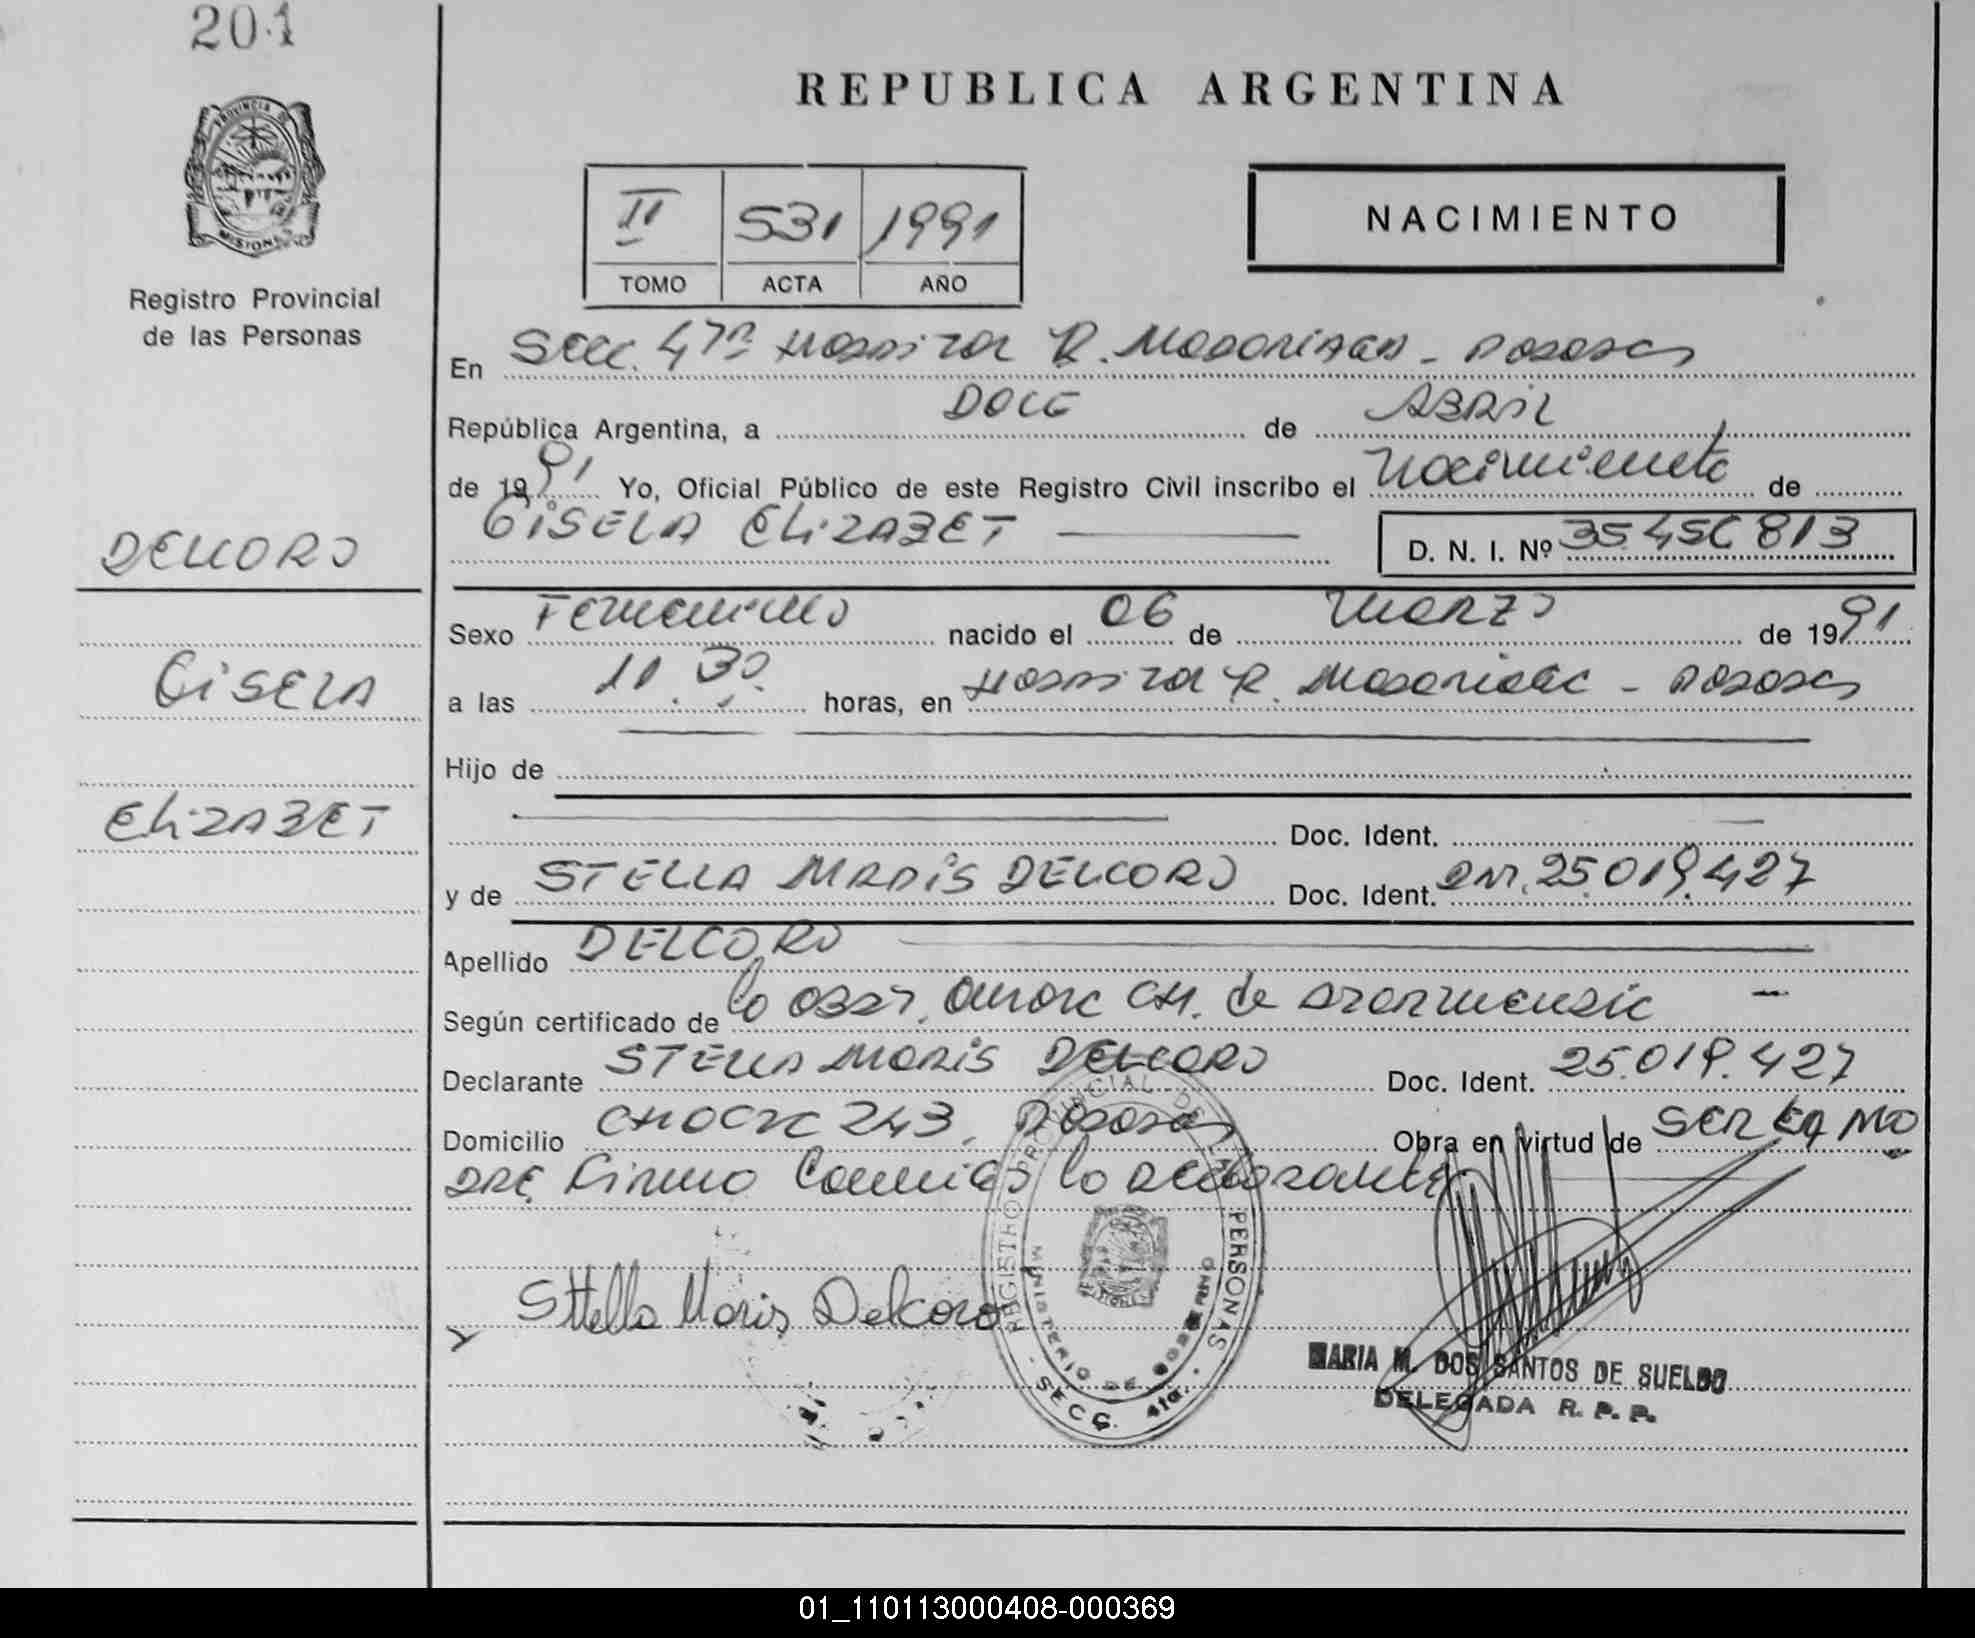 201
REPUBLICA ARGENTINA
PROVINCIA DE
MISIONES
Registro Provincial
de las Personas
II 531 1991
TOMO ACTA AÑO
NACIMIENTO
En Secc. 4ta Hospital R. Madariaga - Posadas
República Argentina, a DOCE de ABRIL
de 1991 Yo, Oficial Público de este Registro Civil inscribo el Nacimiento de
GISELA ELIZABET D. N. I. Nº 35456813
DELCORO
GISELA
ELIZABET
Sexo Femenino nacido el 06 de Marzo de 1991
a las 11.30 horas, en Hospital R. Madariaga - Posadas
Hijo de
Doc. Ident.
y de STELLA MARIS DELCORO Doc. Ident. DNI. 25.019.427
Apellido DELCORO
Según certificado de la Obst. de
Declarante STELLA MARIS DELCORO Doc. Ident. 25.019.427
Domicilio 243. Posadas Obra en virtud de SER LA MA
DRE. Firma Conmigo la declarante
Stella Maris Delcoro
REGISTRO PROVINCIAL DE LAS PERSONAS
MINISTERIO DE GOBIERNO
SECC. 4ta.
MARIA M. DOS SANTOS DE SUELDO
DELEGADA R. P. P.
01_110113000408-000369